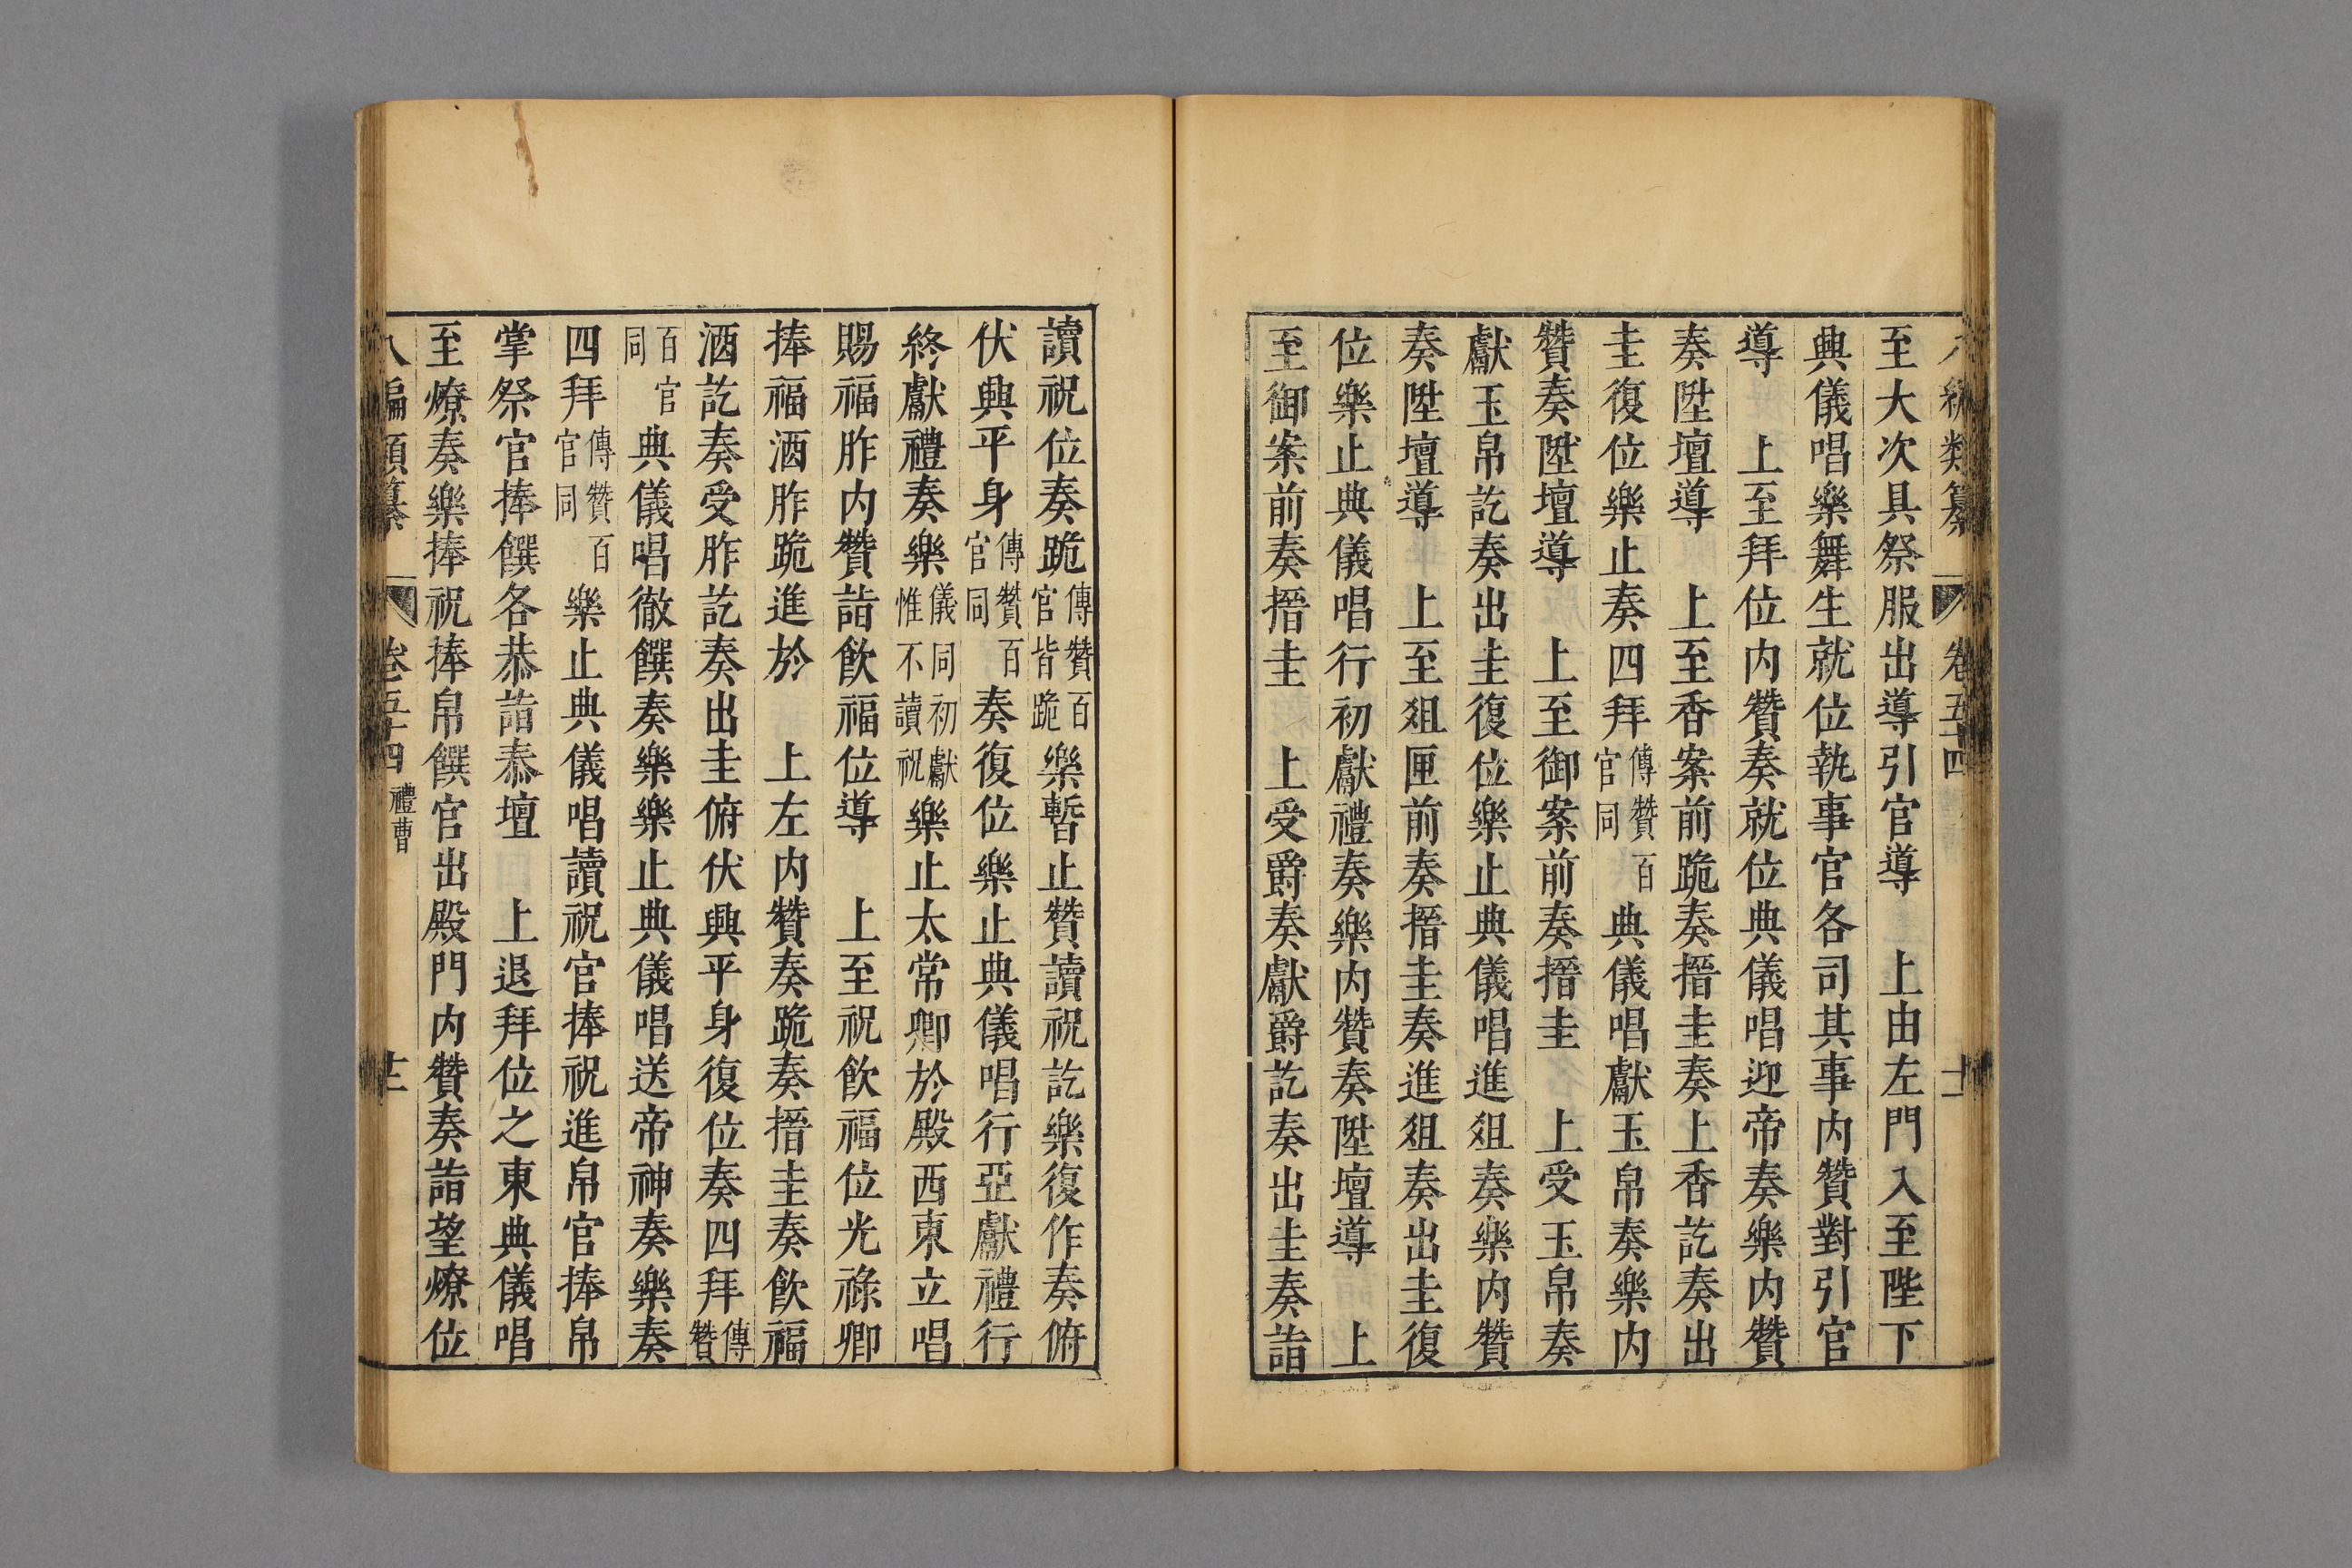 至大次具祭服出導引官導　上由左門入至陛下
典儀唱樂舞生就位執事官各司其事内贊對引官
導　上至拜位内贊奏就位典儀唱迎帝奏樂内贊
奏陞壇導　上至香案前跪奏搢圭奏上香訖奏出
圭復位樂止奏四拜傳贊百官同典儀唱獻玉帛奏樂内
贊奏陞壇導　上至御案前奏搢圭　上受玉帛奏
獻玉帛訖奏出圭復位樂止典儀唱進俎奏樂内贊
奏陞壇導　上至俎匣前奏搢圭奏進俎奏出圭復
位樂止典儀唱行初獻禮奏樂内贊奏陞壇導　上
至御案前奏搢圭　上受爵奏獻爵訖奏出圭奏詣
讀祝位奏跪傳贊百官皆跪樂暫止贊讀祝訖樂復作奏俯
伏興平身傳贊百官同奏復位樂止典儀唱行亞獻禮行
終獻禮奏樂儀同初獻惟不讀祝樂止太常卿於殿西東立唱
賜福胙内贊詣飲福位導　上至祝飲福位光祿卿
捧福酒胙跪進於　上左内贊奏跪奏搢圭奏飲福
酒訖奏受胙訖奏出圭俯伏興平身復位奏四拜傳贊
百官同典儀唱徹饌奏樂樂止典儀唱送帝神奏樂奏
四拜傳贊百官同樂止典儀唱讀祝官捧祝進帛官捧帛
掌祭官捧饌各恭詣泰壇　上退拜位之東典儀唱
至燎奏樂捧祝捧帛饌官出殿門内贊奏詣望燎位
八編類纂　卷五十四　禮曹　十二